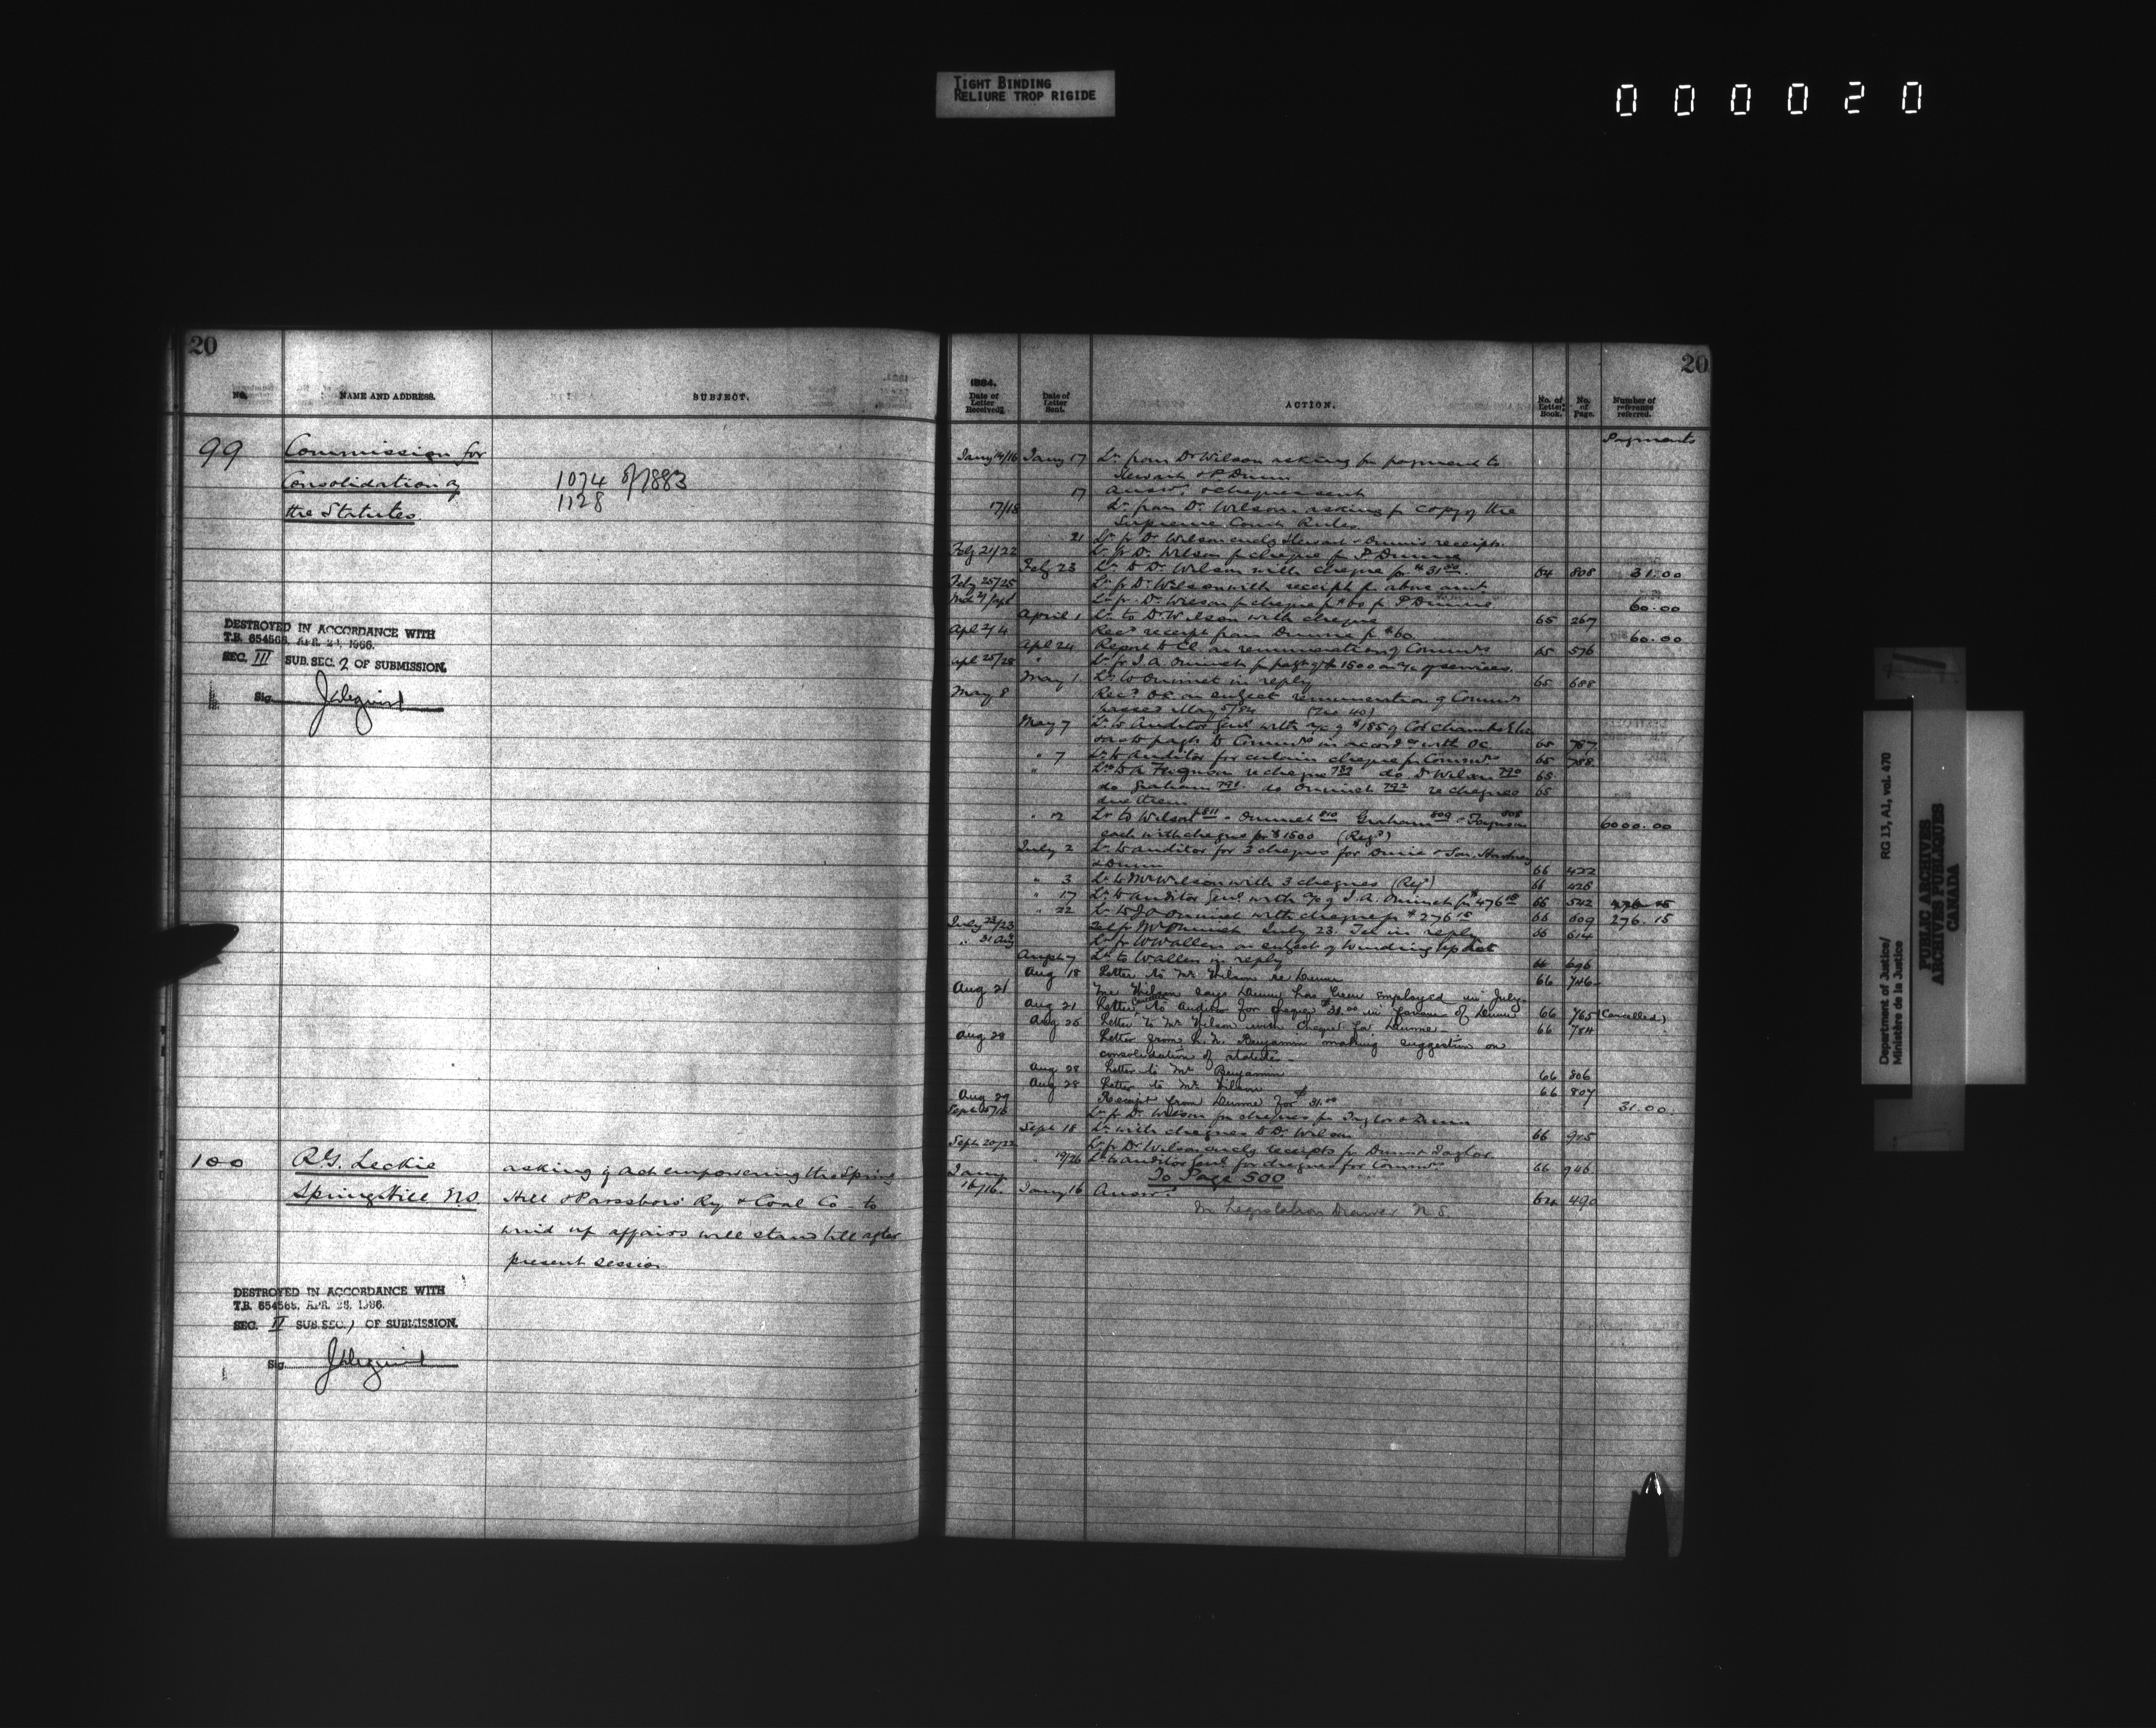 TIGHT BINDING
RELIURE TROP RIGIDE
000020
20
NO. NAME AND ADDRESS. SUBJECT.
99 Commission for
Consolidation of
the Statutes
1074 of 1883
1128
DESTROYED IN ACCORDANCE WITH
T.B. 654568, APR. 1966.
SEC. III SUB. SEC. 2 OF SUBMISSION.
Sig.
100 R.G. Leckie
Spring Hill N.S.
asking if act empowering the Spring
Hill & Parrsboro Ry & Coal Co to
wind up affairs will stand till after
present session
DESTROYED IN ACCORDANCE WITH
T.B. 654568, APR. 1966.
SEC. II SUB. SEC. 1 OF SUBMISSION.
Sig.
20
1884.
Date of Letter Received. Date of Letter Sent. ACTION. No. of Letter Book. No. of Page. Number of reference referred.
Payments
Jany 14/16 Jany 17 Lr from Dr Wilson asking for payment to
Stewart & P. Dunn
17 Answd & cheques sent
17/18 Lr from Dr Wilson asking for copy of the
Supreme Court Rules
21 Lr fr Dr Wilson encl Stewart & Dunn's receipts
Feby 21/22 Lr fr Dr Wilson for cheque for P Dunne
Feby 23 Lr to Dr Wilson with cheque for $31.00 64 808 31.00
Feby 25/25 Lr fr Dr Wilson with receipt for above amt
Lr fr Dr Wilson for cheque for $60 for P Dunne 60.00
April 1 Lr to Dr Wilson with cheque 65 267
Apl 2/4 Recd receipt from Dunne for $60. 60.00
Apl 24 Report to Cl on remuneration of Commrs 65 576
Apl 25/28 Lr fr J.A. Ouimet for paymt of $1500 on a/c of services.
May 1 Lr to Ouimet in reply 65 688
May 8 Recd OC on subject remuneration of Commrs
passed May 5/84 (No 40)
May 7 Lr to Auditor Genl with a/c of $185 of
also to paymt to Commrs in accordce with OC 65 787
" 7 Lr to Auditor for certain cheques for Commrs 65 788
" Lr to A Ferguson re cheque 789 do Dr Wilson 790 65
do Graham 791 do Ouimet 792 re cheques 65
due them
" 12 Lr to Wilson 811 - Ouimet 810 Graham 809 - Ferguson 808 6000.00
each with cheque for $1500 (Regd)
July 2 Lr to Auditor for 3 cheques for Durie & Son, Hartney
& Dunn 66 422
" 3 Lr to Mr Wilson with 3 cheques (Regd) 66 428
" 17 Lr to Auditor Genl with a/c of J.A. Ouimet for $476 66 542
" 22 Lr to J A Ouimet with cheque for $276.15 66 609 276.15
July 23/23 Tel fr Mr Ouimet July 23. Tel in reply 66 614
" 31 Aug Lr fr W Wallen on subject of Winding Up Act
Lr to Wallen in reply 66 696
Aug 18 Letter to Mr Wilson re Dunne 66 746
Aug 21 Mr Wilson says Dunne has been employed in July
Aug 21 Letter to Auditor for cheque $31.00 in favour of Dunne 66 765 (Cancelled)
Aug 25 Letter to Mr Wilson with cheque for Dunne - 66 784
Aug 28 Letter from Benjamin making suggestion on
consolidation of statutes -
Aug 28 Letter to Mr Benjamin 66 806
Aug 28 Letter to Mr Wilson 66 807
Aug 29 Receipt from Dunne for $31.00 31.00
Sept 15/16 Lr fr Dr Wilson for cheques for Taylor & Dunn
Sept 18 Lr with cheques to Dr Wilson 66 925
Sept 20/22 Lr fr Dr Wilson encl receipts for Dunn & Taylor
" 19/26 Lr to Auditor Genl for cheques for Commrs 66 946
To Page 500
Jany 16/16. Jany 16 Answd 64 490
In Legislation Drawer N.S.
Department of Justice/
Ministère de la Justice
RG 13, A1, vol. 470
PUBLIC ARCHIVES
ARCHIVES PUBLIQUES
CANADA